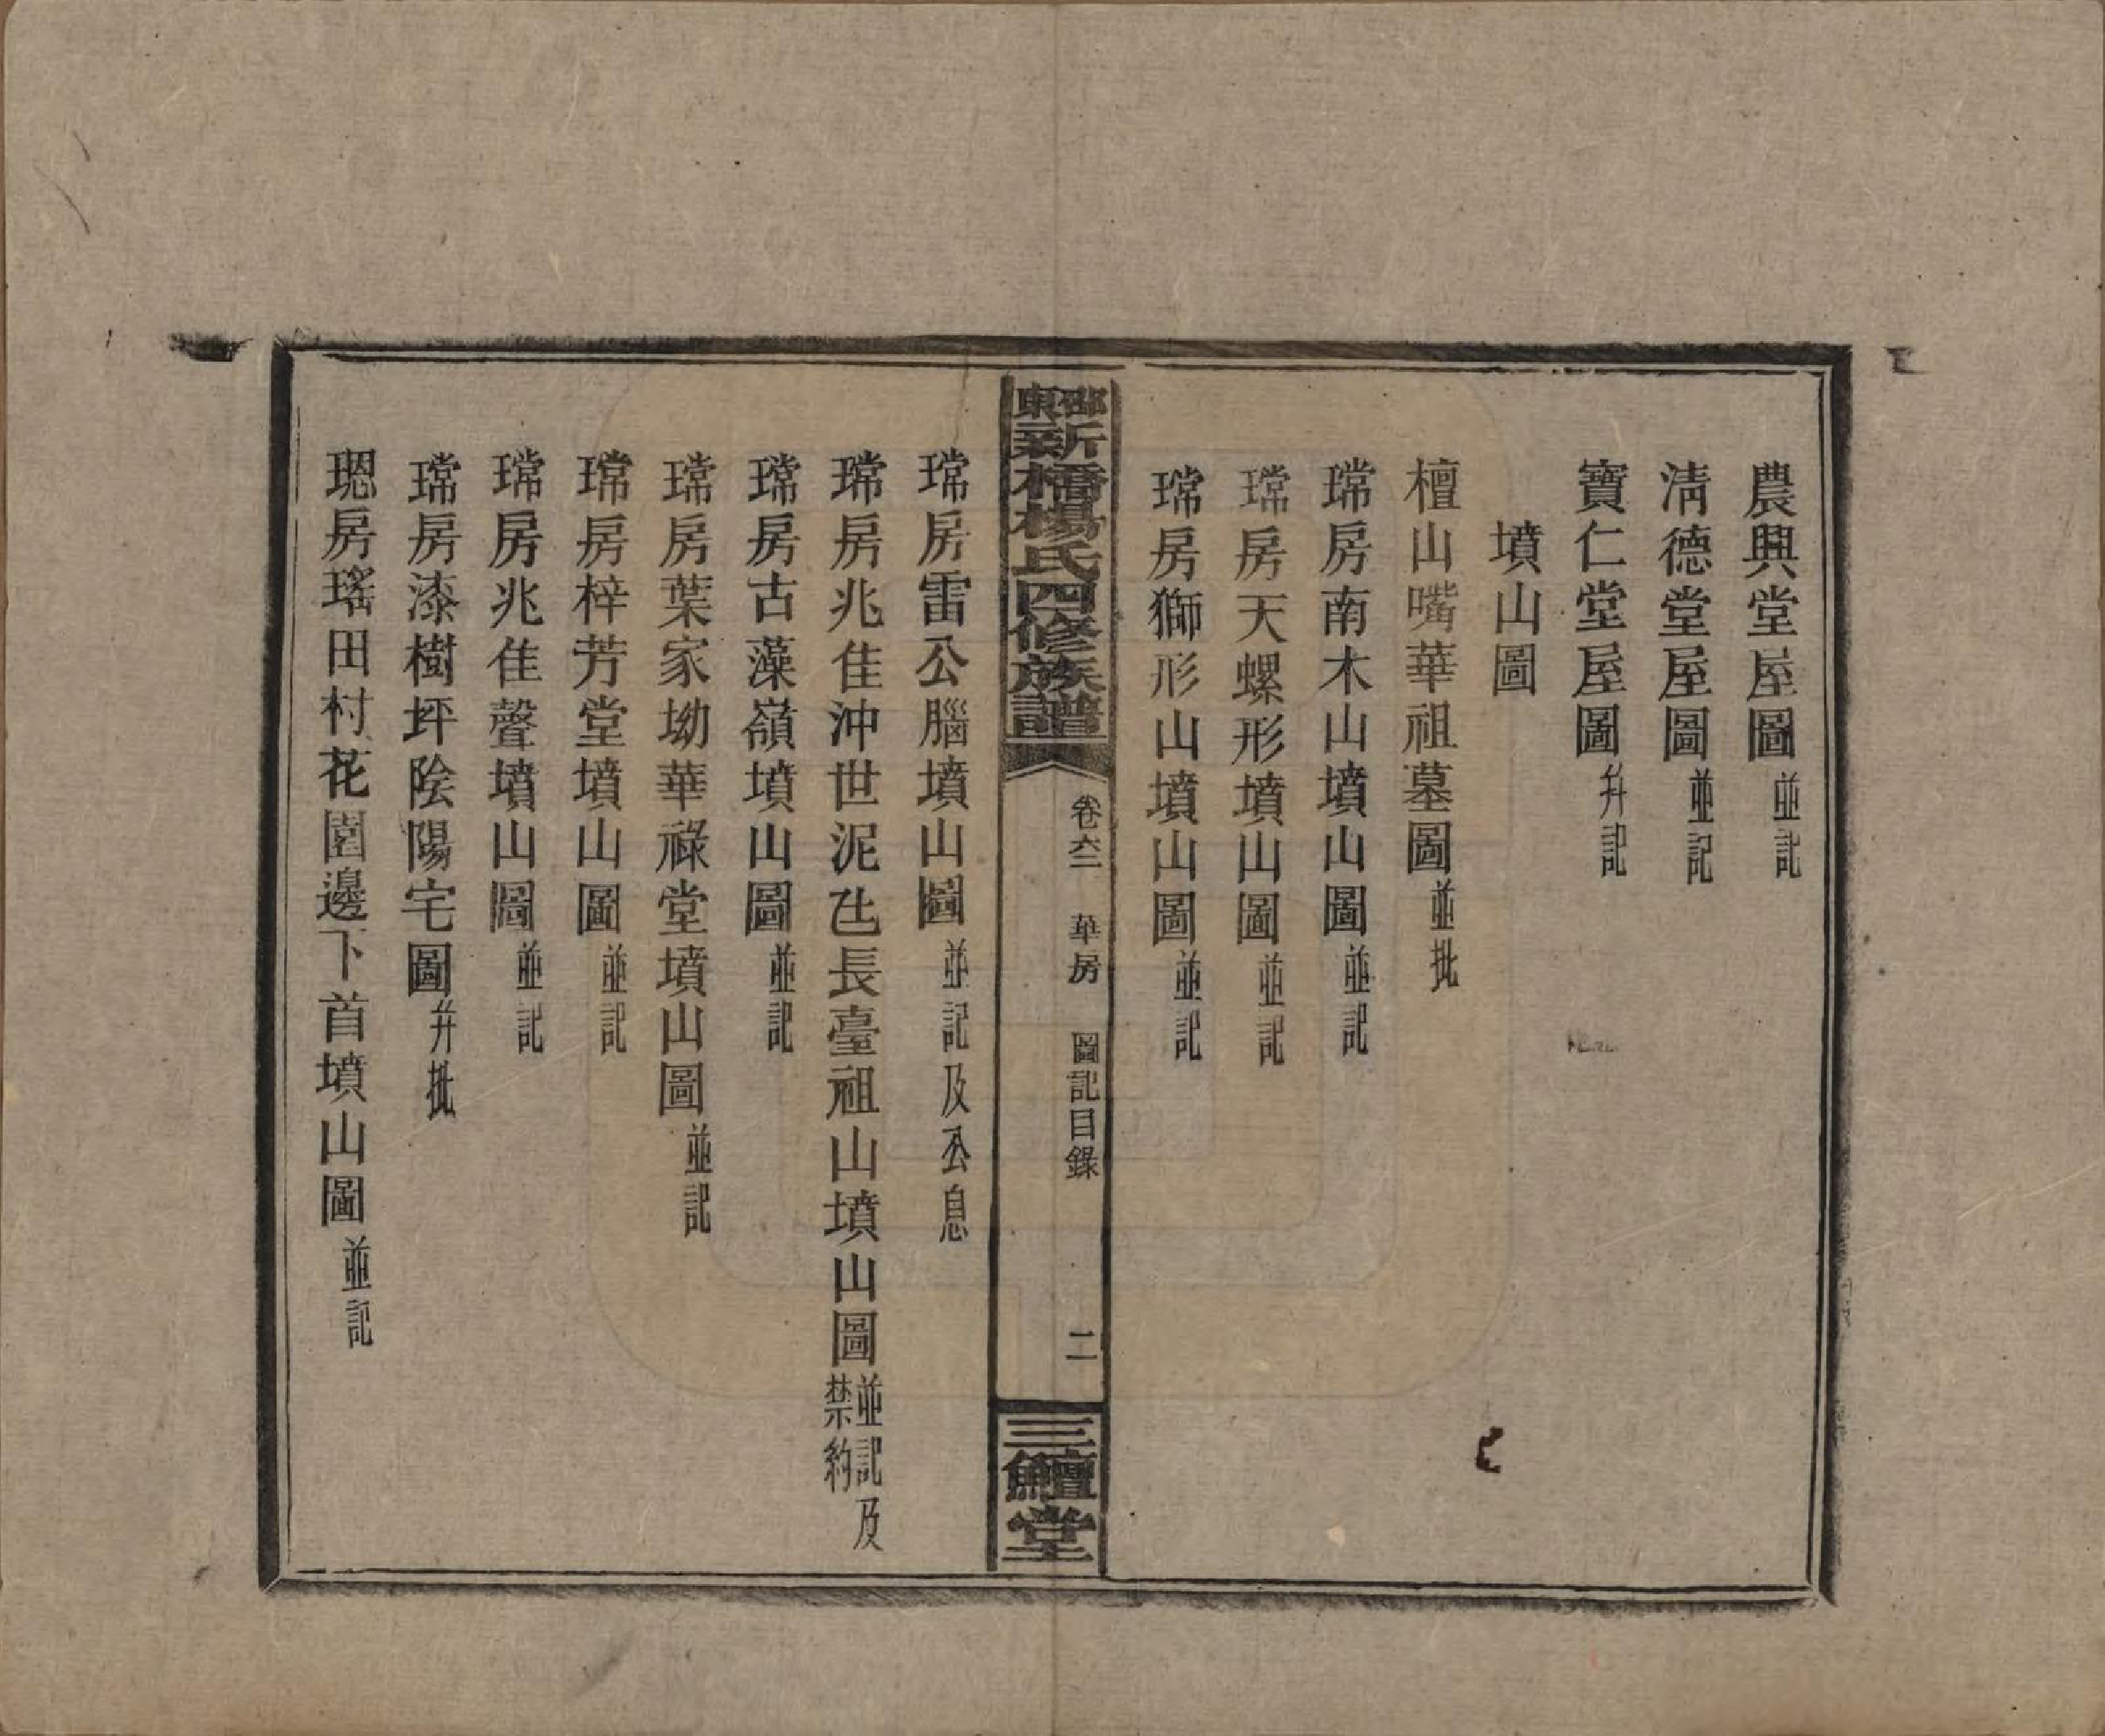 農興堂屋圖並記
清德堂屋圖並記
寶仁堂屋圖幷記
墳山圖
檀山嘴華祖墓圖並批
瑺房南木山墳山圖並記
瑺房天螺形墳山圖並記
瑺房獅形山墳山圖並記
邵東新橋楊氏四修族譜 卷六二 華房 圖記目錄 二 三鱣堂
瑺房雷公腦墳山圖並記及公息
瑺房兆佳沖世泥乪長臺祖山墳山圖並記及禁約
瑺房古藻嶺墳山圖並記
瑺房葉家坳華祿堂墳山圖並記
瑺房梓芳堂墳山圖並記
瑺房兆佳聲墳山圖並記
瑺房漆樹坪陰陽宅圖幷批
璁房瑤田村花園邊下首墳山圖並記